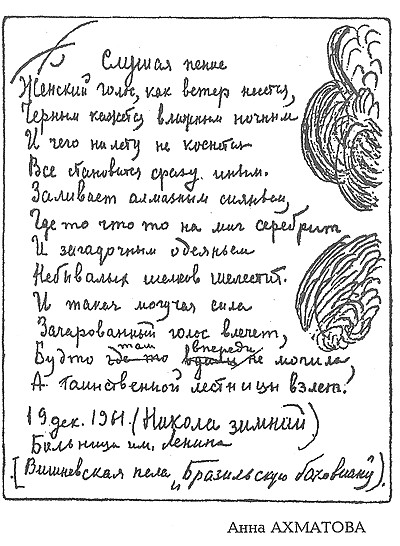 Слушая пение
Женский голос, как ветер несется,
Черным кажется влажным ночным
И чего на лету не коснется
Все становится сразу иным.
Заливает алмазным сияньем,
Где то что то на миг серебрит
И загадочным одеяньем
Небывалых шелков шелестит.
И такая могучая сила
Зачарованный голос влечет,
там впереди
Будто где-то вдали не могила,
А таинственной лестницы взлет.
19 дек. 1961. (Никола зимний)
Больница им. Ленина
[Вишневская пела „Бразильскую баховиану").
Анна АХМАТОВА